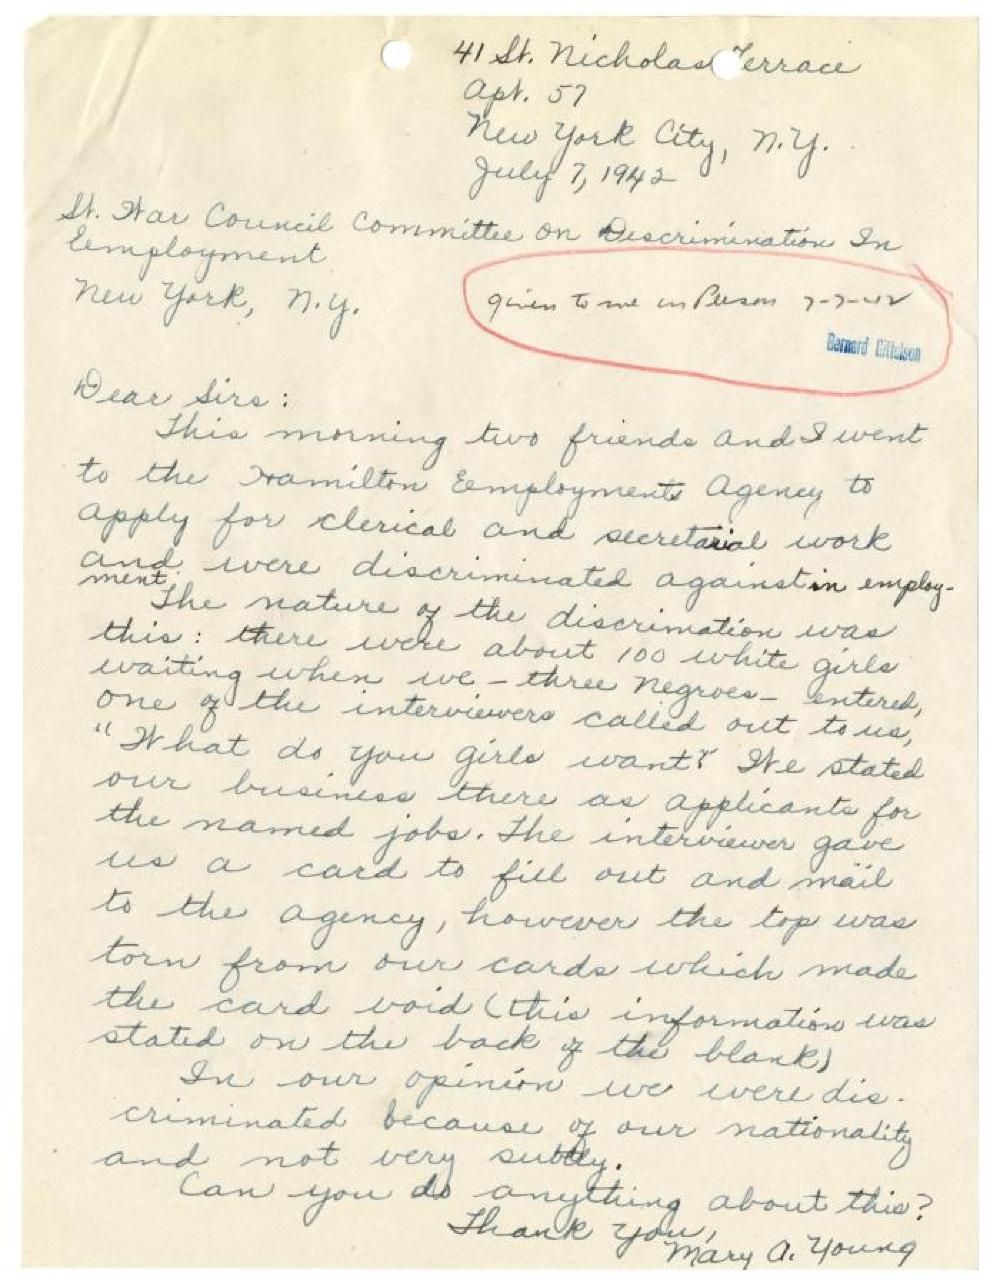 41 St. Nicholas Terrace
Apt. 57
New York City, N.Y.
July 7, 1942
St. War Council Committee on Discrimination In
Eemployment
New York, N.Y.
given to me in Person 7-7-42
Bernard Gittelson
Dear Sirs:
This morning two friends and I went
to the Hamilton Eemployments Agency to
apply for clerical and secretarial work
and were discriminated against in employ-
ment.
The nature of the discrimation was
this: there were about 100 white girls
waiting when we - three negroes - entered,
one of the interviewers called out to us,
"What do you girls want?" We stated
our business there as applicants for
the named jobs. The interviewer gave
us a card to fill out and mail
to the agency, however the top was
torn from our cards which made
the card void (this information was
stated on the back of the blank)
In our opinion we were dis-
criminated because of our nationality
and not very subtly.
Can you do anything about this?
Thank You,
Mary A. Young